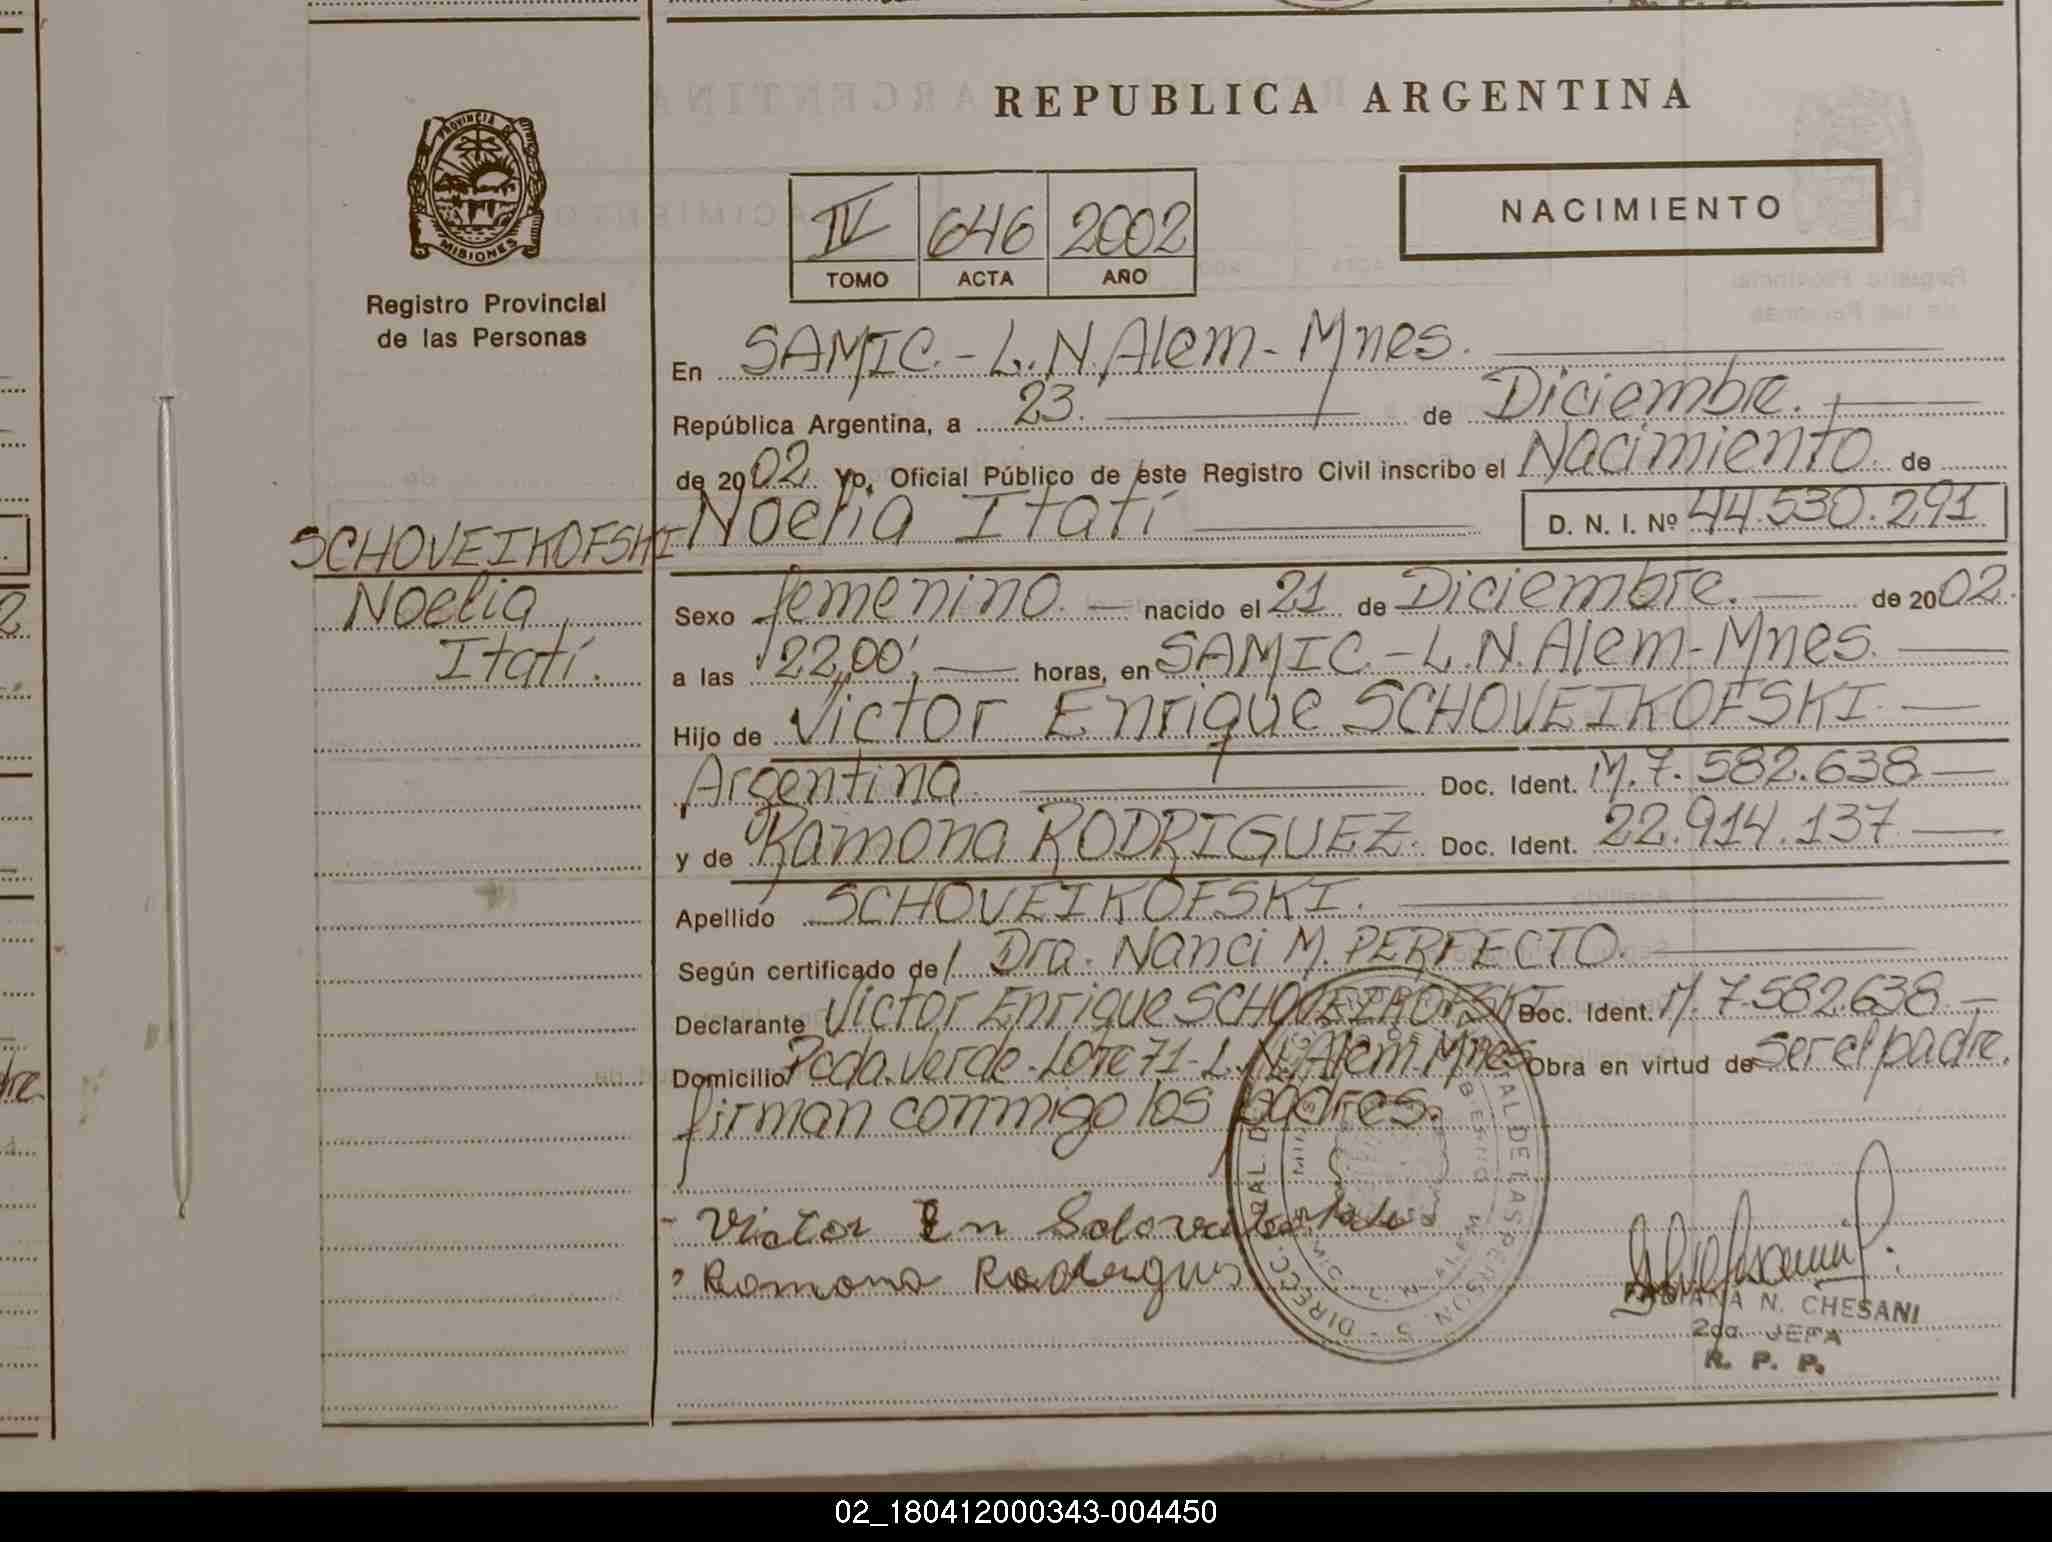 REPUBLICA ARGENTINA
PROVINCIA DE
MISIONES
Registro Provincial
de las Personas
NACIMIENTO
IV 646 2002
TOMO ACTA AÑO
En SAMIC.-L.N.Alem-Mnes.
República Argentina, a 23. de Diciembre.
de 2002 Yo, Oficial Público de este Registro Civil inscribo el Nacimiento de
Noelia Itatí D. N. I. Nº 44.530.291
SCHOVEIKOFSKI
Noelia
Itatí.
Sexo femenino. nacido el 21 de Diciembre. de 2002.
a las 22,00' horas, en SAMIC.-L.N.Alem-Mnes.
Hijo de Victor Enrique SCHOVEIKOFSKI
Argentina Doc. Ident. M.7.582.638
y de Ramona RODRIGUEZ. Doc. Ident. 22.914.137
Apellido SCHOVEIKOFSKI.
Según certificado de Dra. Nanci M. PERFECTO.
Declarante Victor Enrique SCHOVEIKOFSKI Doc. Ident. M.7.582.638
Domicilio Pcda.Verde-Lote 71-L.N.Alem.Mnes Obra en virtud de Ser el padre.
firman conmigo los padres.
Victor En
Romona
FABIANA N. CHESANI
2da. JEFA
R. P. P.
02_180412000343-004450